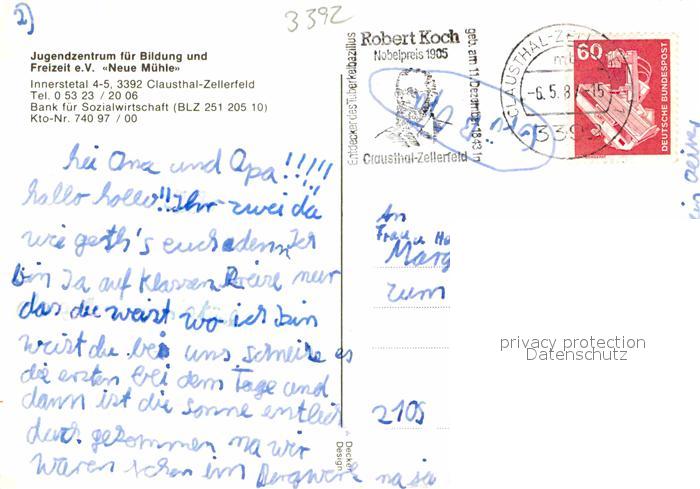 2)
3392
Jugendzentrum für Bildung und
Freizeit e.V. «Neue Mühle»
Innerstetal 4-5, 3392 Clausthal-Zellerfeld
Tel. 0 53 23 / 20 06
Bank für Sozialwirtschaft (BLZ 251 205 10)
Kto-Nr. 740 97 / 00
Entdecker des Tuberkelbazillus
Robert Koch
Nobelpreis 1905
geb. am 11. Dezember 1843 in
Clausthal-Zellerfeld
CLAUSTHAL-ZELL
-6.5.87-15
339
60
DEUTSCHE BUNDESPOST
hei Oma und Opa!!!!!
hallo hallo!! Ihr zwei da
wie geth's euch denn Ich
bin Ja auf Klassen Reise nur
das du weist wo ich bin
weist du bei uns schneite es
die ersten bei dem Tage und
dann ist die sonne entlich
durch gekommen na wir
waren schon im Bergwerk na ja
An
Frau u He
Marg
zum
2105
Decker
Design
privacy protection
Datenschutz